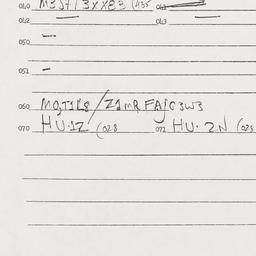 040 M3J713XX83 (435
042 — 043 —
050 —
051 —
060 MQT1L8/Z1MRFAJC3W3
070 HU·1Z (028 072 HU·2N (028